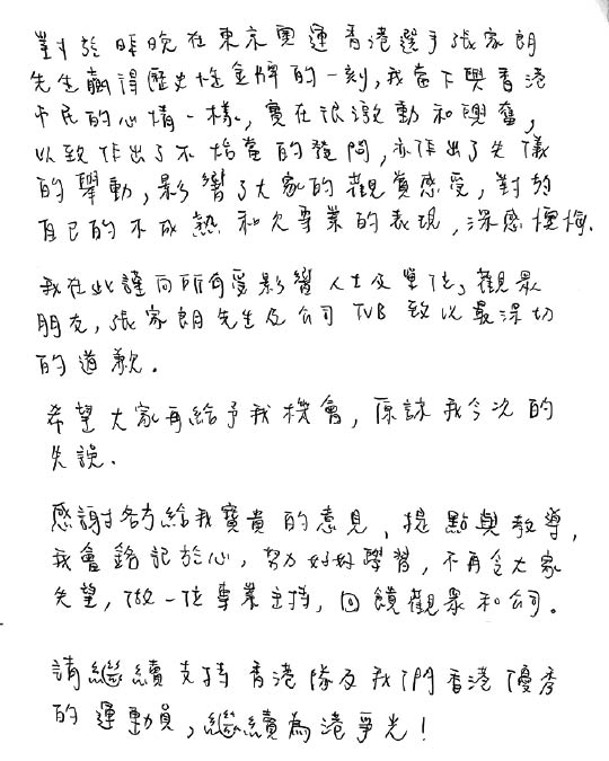 對於昨晚在東京奧運香港選手張家朗
先生贏得歷史性金牌的一刻,我當下與香港
市民的心情一樣,實在很激動和興奮,
以致作出了不恰當的發問,亦作出了失儀
的舉動,影響了大家的觀賞感受,對於
自己的不成熟和欠專業的表現,深感懊悔.
我在此謹向所有受影響人士及單位,觀眾
朋友,張家朗先生及公司TVB致以最深切
的道歉.
希望大家再給予我機會,原諒我今次的
失誤.
感謝各方給我寶貴的意見、提點與教導,
我會銘記於心,努力好好學習,不再令大家
失望,做一位專業主持,回饋觀眾和公司。
請繼續支持香港隊及我們香港優秀
的運動員,繼續為港爭光!